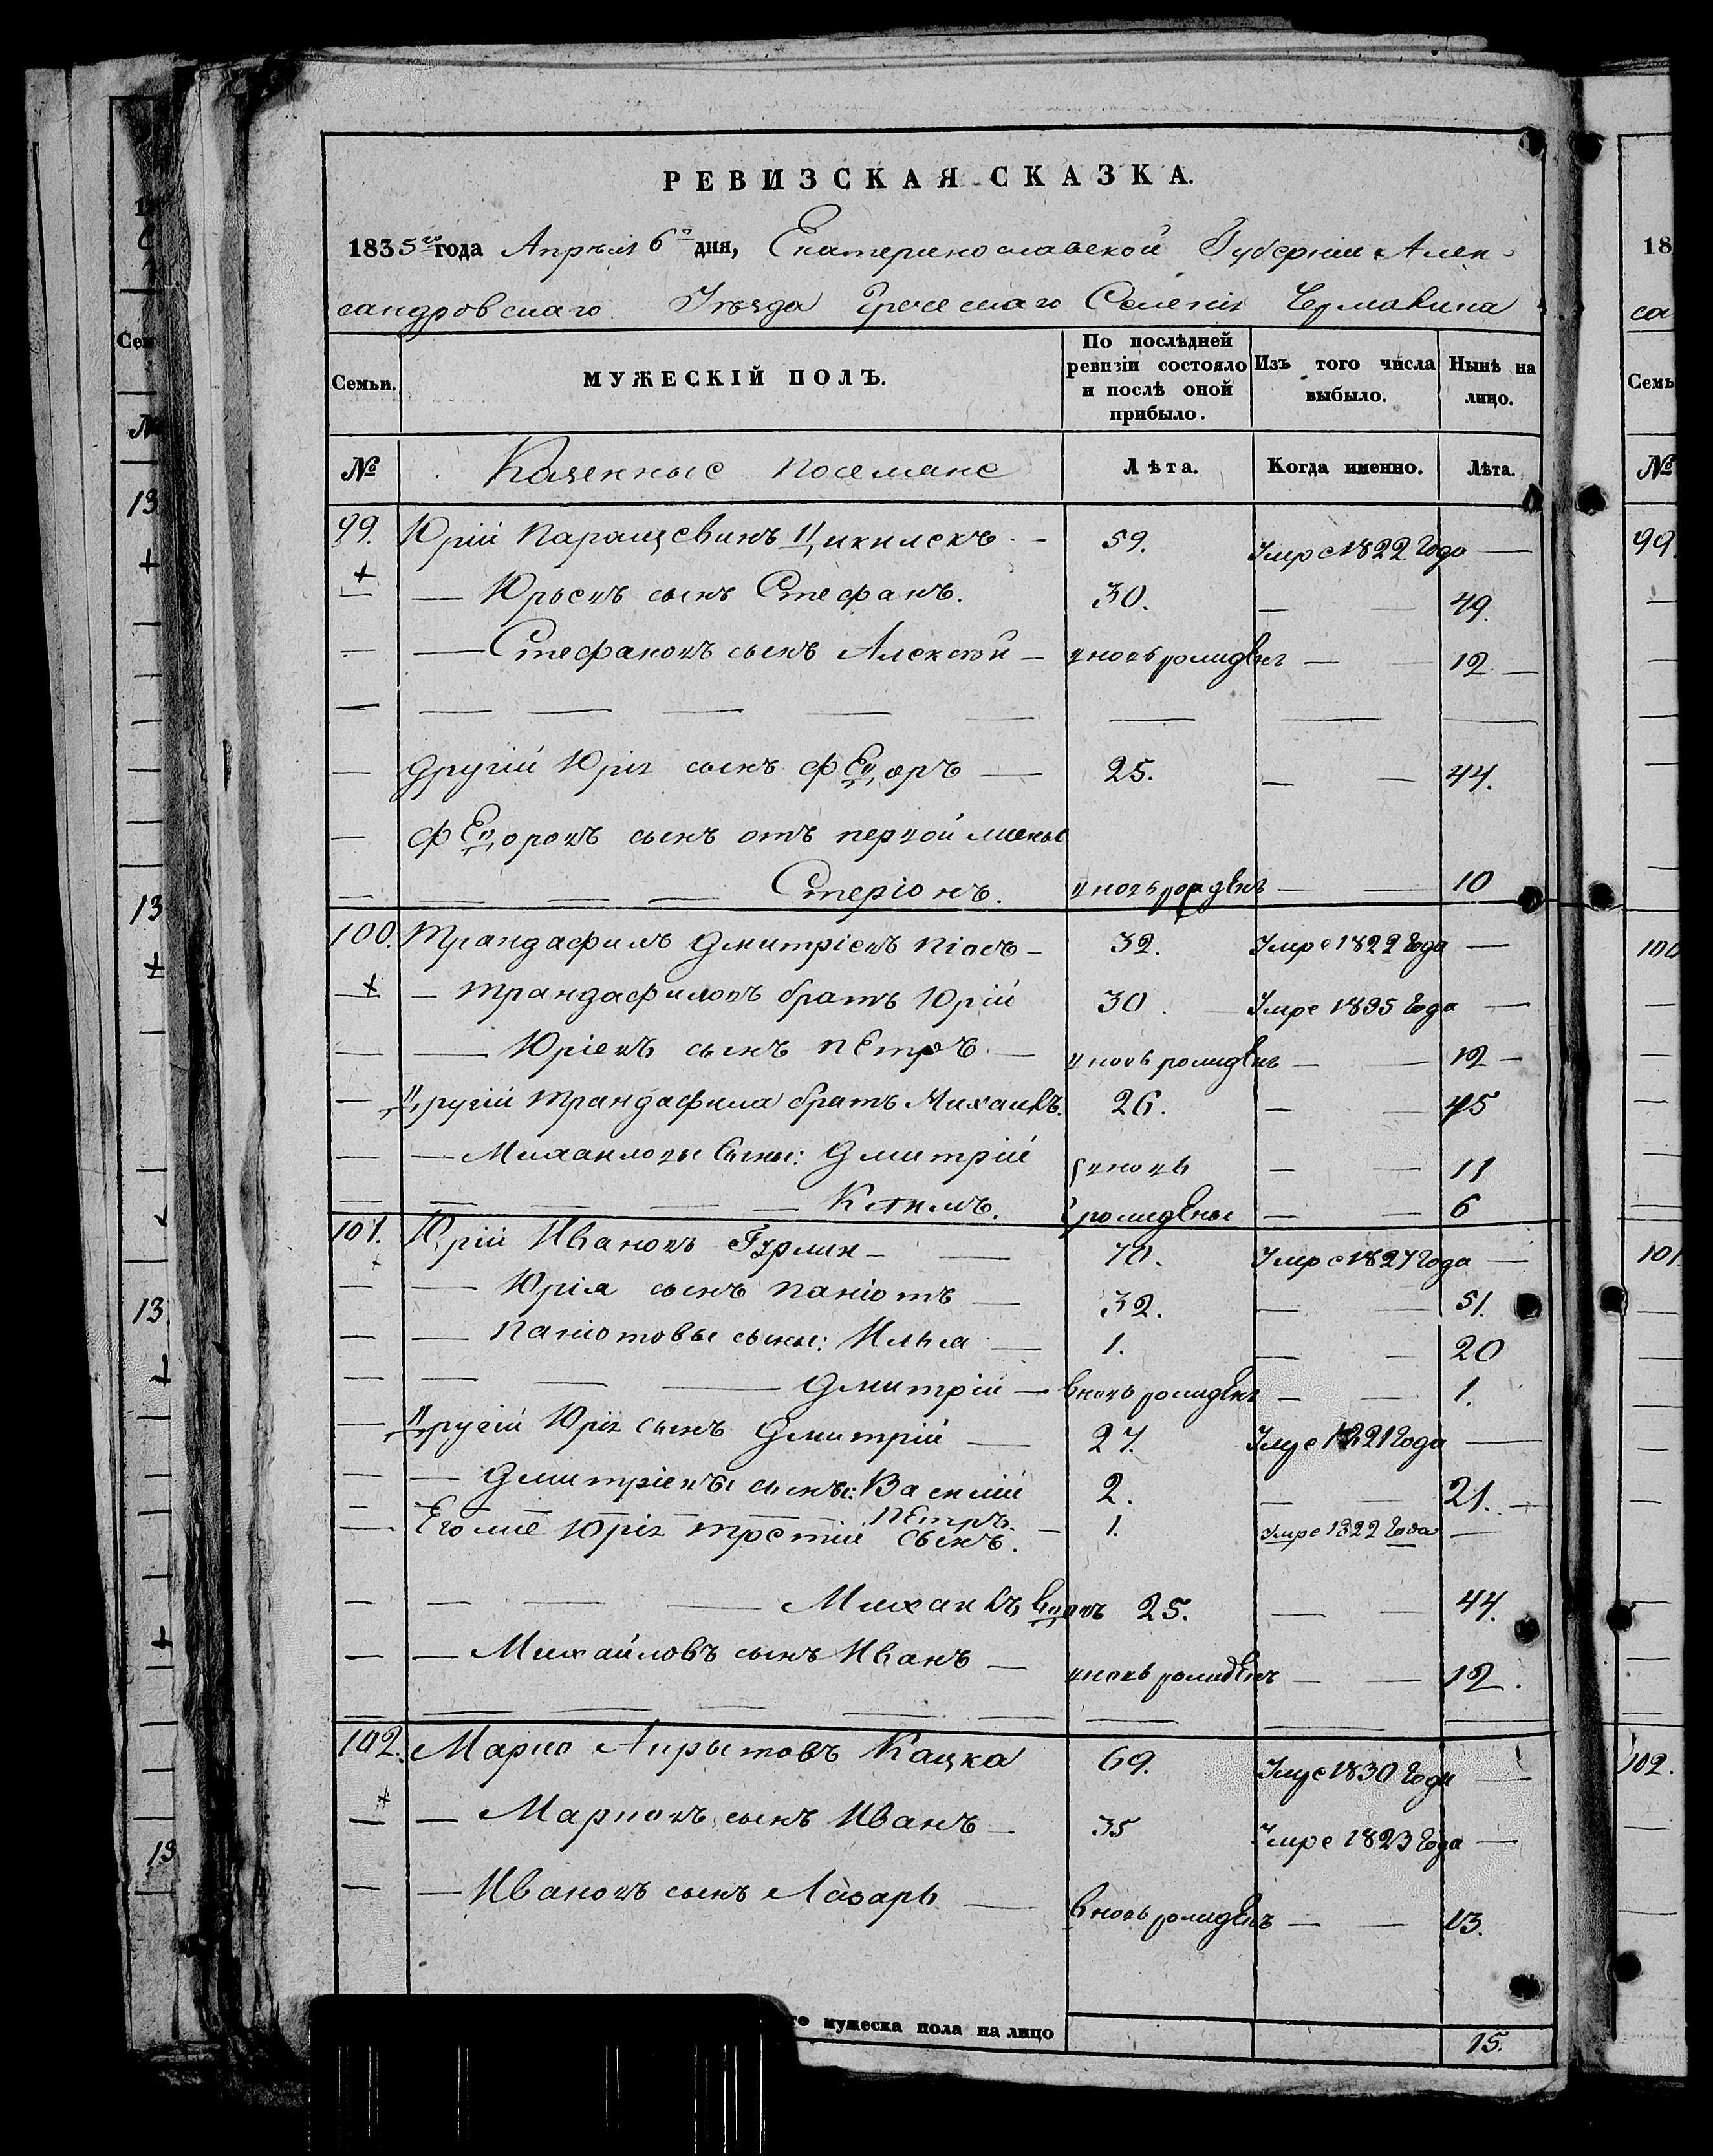 РЕВИЗСКАЯ СКАЗКА.
1835го года Апрѣля 6о дня, Екатеринославской Губерніи Алек-
сандровскаго Уѣзда Греческаго Селенія Чермалика
Семьи. МУЖЕСКІЙ ПОЛЪ. По послѣдней ревизіи состояло и послѣ оной прибыло. Изъ того числа выбыло. Нынѣ на лицо.
№ Казенные поселяне Лѣта. Когда именно. Лѣта.
99. Юрій Паращевинъ 59. Умре 1822 Года —
+ — Юрьевъ сынъ Стефанъ. 30. — — 49.
— — Стефановъ сынъ Алексѣй — вновь рожденъ — — 12 —
— Другій Юрія сынъ Феодоръ — 25. — — 44.
— Феодоровъ сынъ отъ первой жены
— — — — Стеріонъ. вновь рожденъ — — 10
100. Трандафилъ Дмитріевъ Піосъ — 32. Умре 1822 Года —
+ — Трандафиловъ братъ Юрій 30. Умре 1835 Года —
— — Юріевъ сынъ Петръ — вновь рожденъ — — 12 —
— Другій Трандафила братъ Михаилъ. 26. — — 45
— — Михаиловы Сыны: Дмитрій вновь — — 11
— — — — — рождены — — 6
101. Юрій Ивановъ — — 70. Умре 1827 Года —
— — Юрія сынъ Паніотъ — 32. — — 51.
— — Паніотовы сыны: Илья — 1. — — 20
— — — — Дмитрій — вновь рожденъ — — 1.
— Другій Юрія сынъ Дмитрій — 27. Умре 1821 Года —
— — Дмитріевы сыны: Василій 2. — — 21. —
— — — — Петръ. — 1. Умре 1822 Года —
— Его же Юрія третій сынъ.
— — — — Михаилъ 25. — — 44.
— — Михайловъ сынъ Иванъ — вновь рожденъ — — 12.
102. Марко Кацка 69. Умре 1830 Года —
+ — Марковъ сынъ Иванъ — 35 Умре 1823 Года —
— — Ивановъ сынъ Лазарь — вновь рожденъ — — 13.
мужеска пола на лицо 15.
13
+
13
+
13.
+
+
13
18
са
Семь
№
99.
100
101.
102.